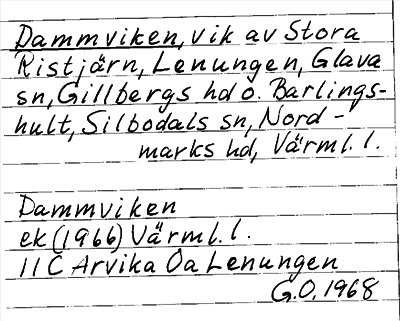 Dammviken, vik av Stora
Ristjärn, Lenungen, Glava
sn, Gillbergs hd o. Barlings-
hult, Silbodals sn, Nord-
marks hd, Värml. l.
Dammviken
ek (1966) Värml. l.
11C Arvika Öa Lenungen
G.O. 1968